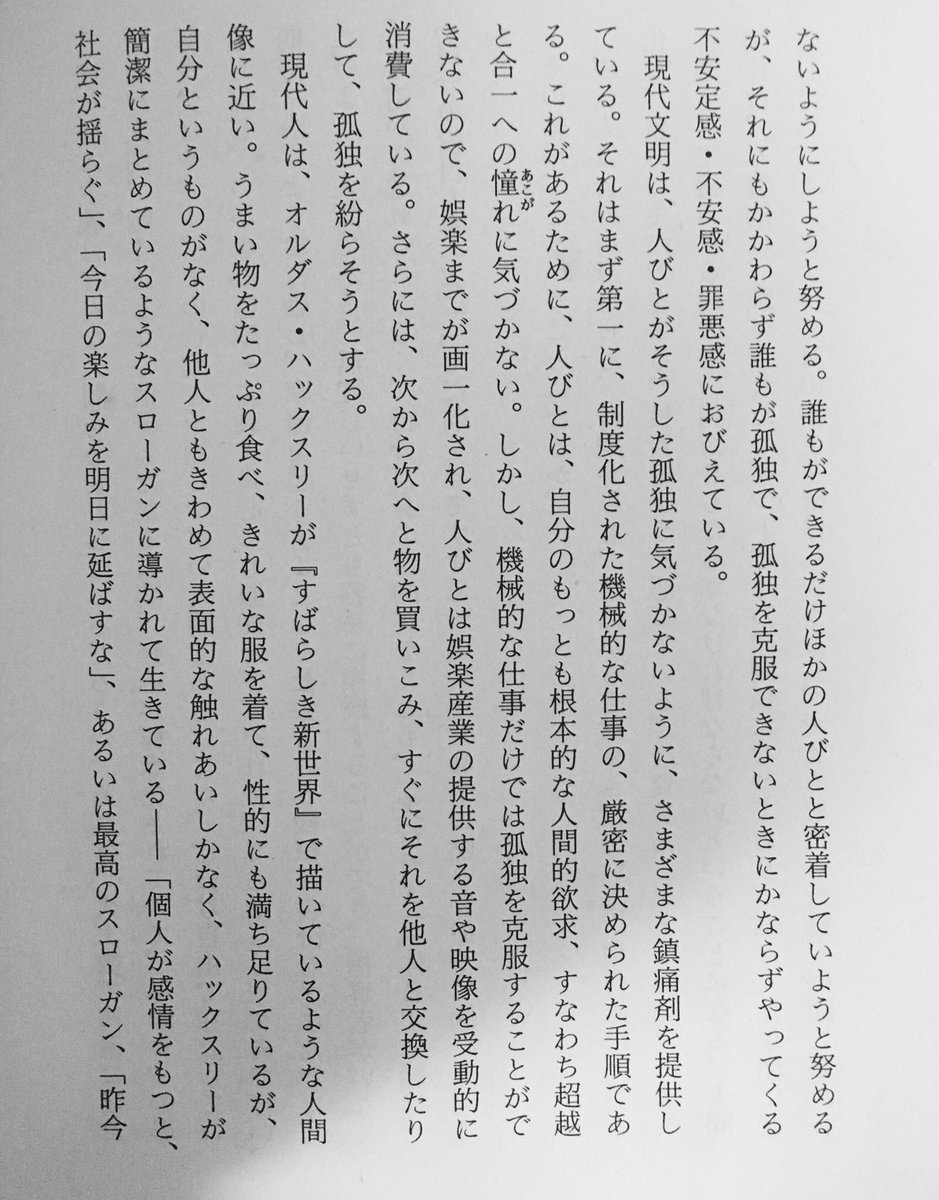 ないようにしようと努める。誰もができるだけほかの人びとと密着していようと努める
が、それにもかかわらず誰もが孤独で、孤独を克服できないときにかならずやってくる
不安定感・不安感・罪悪感におびえている。
現代文明は、人びとがそうした孤独に気づかないように、さまざまな鎮痛剤を提供し
ている。それはまず第一に、制度化された機械的な仕事の、厳密に決められた手順であ
る。これがあるために、人びとは、自分のもっとも根本的な人間的欲求、すなわち超越
と合一への憧れに気づかない。しかし、機械的な仕事だけでは孤独を克服することがで
あこが
きないので、娯楽までが画一化され、人びとは娯楽産業の提供する音や映像を受動的に
消費している。さらには、次から次へと物を買いこみ、すぐにそれを他人と交換したり
して、孤独を紛らそうとする。
現代人は、オルダス・ハックスリーが『すばらしき新世界』で描いているような人間
像に近い。うまい物をたっぷり食べ、きれいな服を着て、性的にも満ち足りているが、
自分というものがなく、他人ともきわめて表面的な触れあいしかなく、ハックスリーが
簡潔にまとめているようなスローガンに導かれて生きている――「個人が感情をもつと、
社会が揺らぐ」、「今日の楽しみを明日に延ばすな」、あるいは最高のスローガン、「昨今